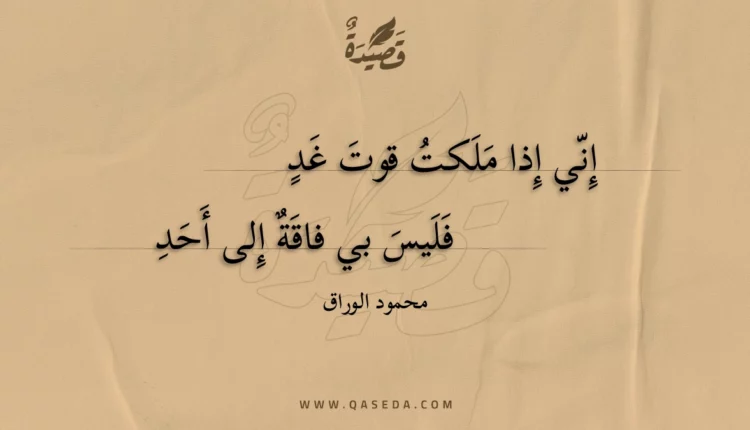 قَصِيدَةٌ
إِنّي إِذا مَلَكتُ قوتَ غَدٍ
فَلَيسَ بي فاقَةٌ إِلى أَحَدِ
محمود الوراق
WWW.QASEDA.COM